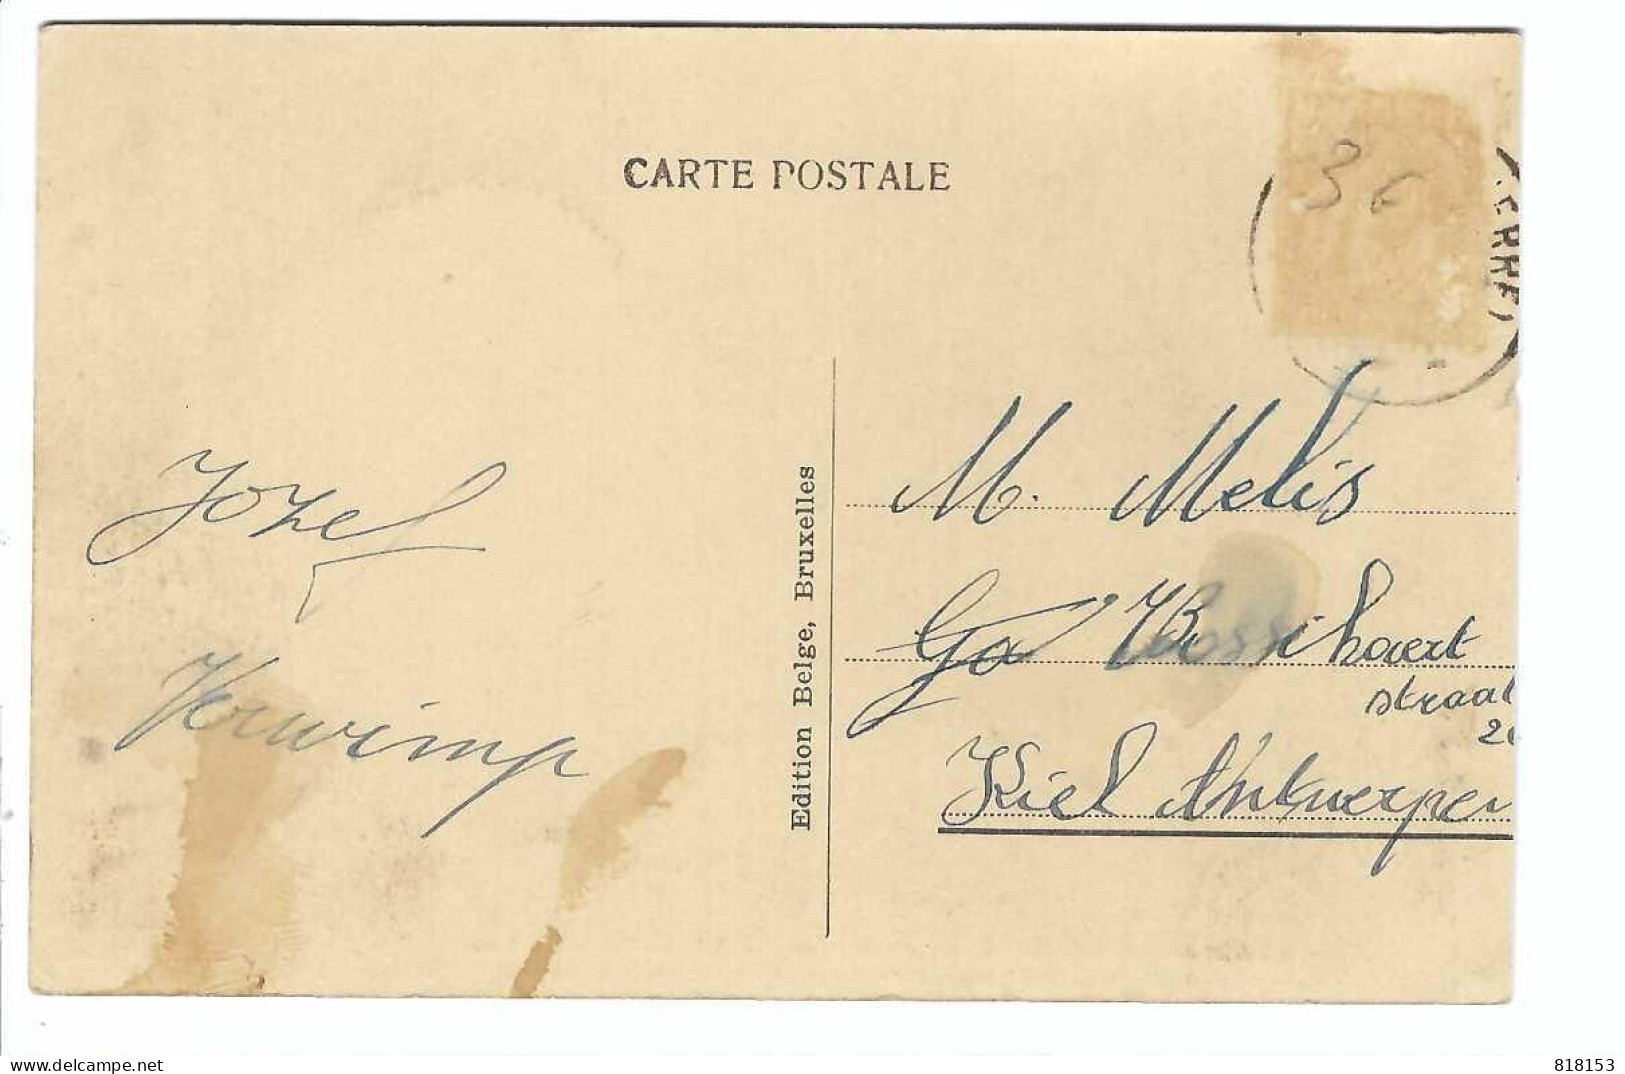 CARTE POSTALE
36
ERRE
Jozef
Verwimp
Edition Belge, Bruxelles
M. Melis
Bosschaert
straat
Kiel Antwerpen
delcampe.net
818153